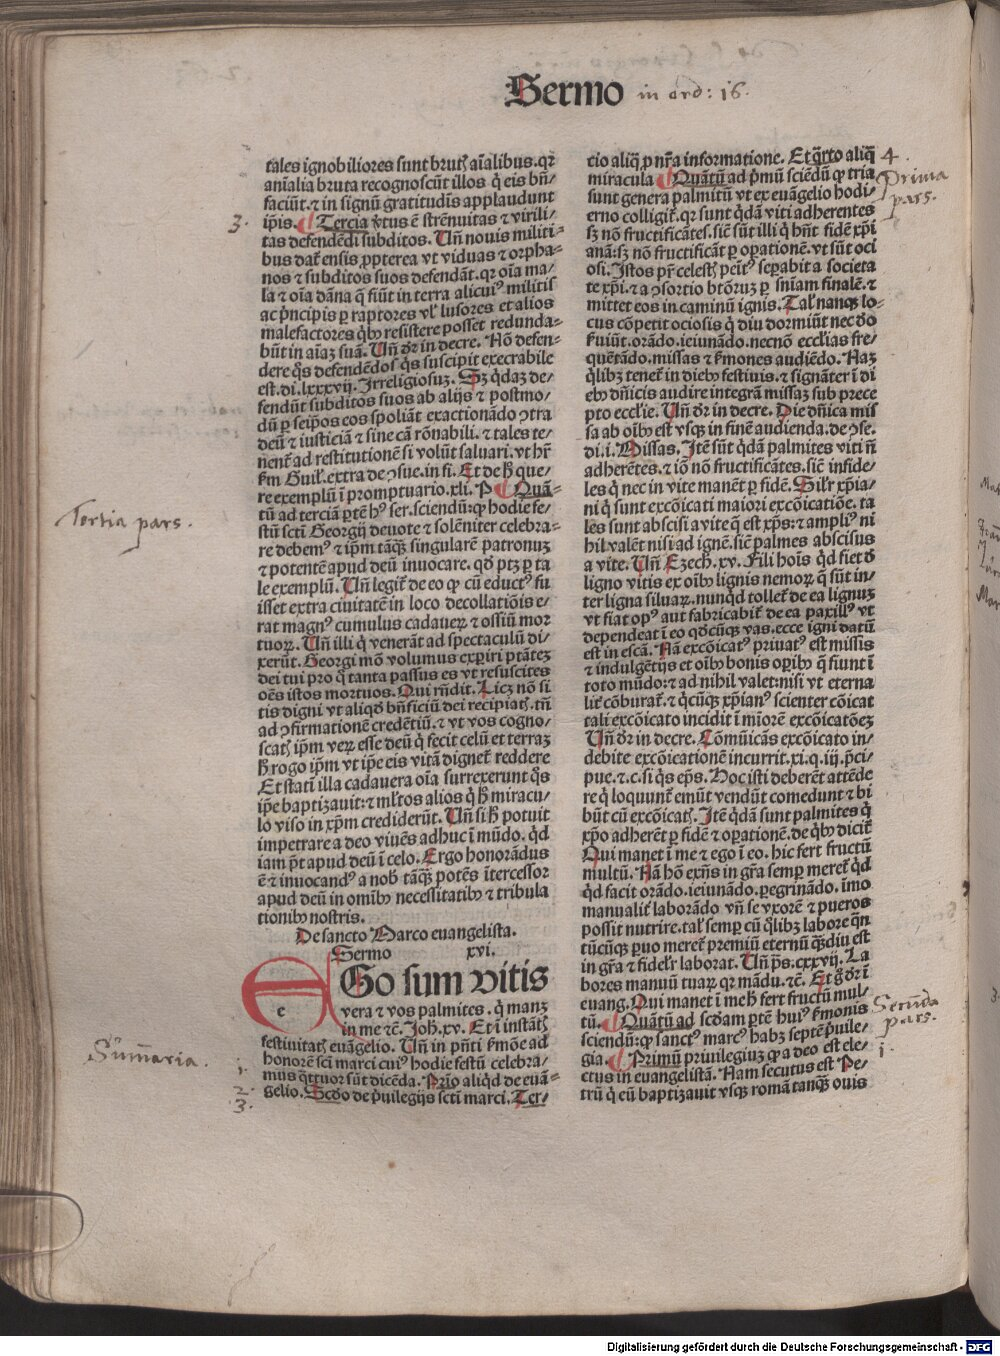 Sermo in ord: 16.
tales ignobiliores sunt brutꝭ aīalibus. qꝛ
animalia bruta recognoscūt illos q̇ eis bn̄-
faciūt. ⁊ in signū gratitudis applaudunt
ip̄is. Tercia v̄tus ē strēnuitas ⁊ virili-
3.
tas defendēdi subditos. Un̄ nouis militi-
bus dat̄ ensis ꝓpterea vt viduas ⁊ orpha-
nos ⁊ subditos suos defendāt. qꝛ oīa ma-
la ⁊ oīa dāna q̄ fiūt in terra alicuiꝰ militis
ac pͥncipis ꝑ raptores vl̓ lusores et alios
malefactores qͥbꝫ resistere posset redunda-
būt in aīaꝫ suā. Un̄ dr̄ in decre. Nō defen-
dere qͦs defendēdo qͦs suscipit execrabile
est. di. lxxxvij. Irreligiosuꝫ. Sꝫ qͥdaꝫ de-
fendūt subditos suos ab alijs ⁊ postmo-
dū ꝑ seip̄os eos spoliāt exactionādo ꝯtra
deū ⁊ iusticiā ⁊ sine cā rōnabili. ⁊ tales te-
nent̄ ad restitutionē si volūt saluari. vt hr̄
Et de h̄ que-
re exemplū ī promptuario. xli. P Quā-
tū ad terciā ꝑtē hꝰ ser. sciendū: ꝙ hodie fe-
stū scti Georgij deuote ⁊ solēniter celebra-
re debemꝰ ⁊ ip̄m tāq̄ singularē patronuꝫ
Tertia pars.
⁊ potentē apud deū inuocare. qd̓ ptꝫ ꝑ ta
le exemplū. Un̄ legit̄ de eo ꝙ cū eductꝰ fu
isset extra ciuitatē in loco decollatiōis e-
rat magnꝰ cumulus cadaueꝝ ⁊ ossiū mor
tuoꝝ. Un̄ illi q̇ venerāt ad spectaculū di-
xerūt. Georgi mō volumus exꝑiri ptātez
dei tui pro quo tanta passus es vt resuscites
oēs istos mortuos. Qui rn̄dit. Licꝫ nō si
tis digni vt aliqd̓ bn̄ficiū dei recipiatꝭ. tn̄
ad ꝯfirmationē credētiū. ⁊ vt vos cogno-
scatꝭ ip̄m veꝝ esse deū q̇ fecit celū et terraꝫ
h̄ rogo ip̄m vt ip̄e eis vitā dignet̄ reddere
Et statī illa cadauera oīa surrexerunt qͦs
ip̄e baptizauit: ⁊ ml̓tos alios q̇ h̄ miracu-
lo viso in xp̄m crediderūt. Un̄ si h̄ potuit
impetrare a deo viuēs adhuc ī mūdo. qͥd
iam pn̄t apud deū ī celo. Ergo honorādus
ē ⁊ inuocandꝰ a nobꝭ tāq̄ꝫ potēs ītercessor
apud deū in omībꝫ necessitatibꝫ ⁊ tribula
tionibꝫ nostris.
De sancto Marco euangelista.
Sermo xvi.
EGo sum vitis
e
vera ⁊ vos palmites. q̇ manꝫ
in me ⁊c̄. Joh. xv. Et ī instātꝭ
festiuitatꝭ euāgelio. Un̄ in pn̄ti ẜmōe ad
Summaria.
honorē sc̄i marci cuiꝰ hodie festū celebra-
1.
mus q̄ttuor sūt dicēda. Prīo aliqͥd de euā-
2.
gelio. Scd̓o de pͥuilegijs scti marci. Ter-
3.
cio aliq̄ ꝑ nr̄a informatione. Et q̄rto aliq̄
4.
miracula Quātū ad pͥmū sciēdū ꝙ tria
Prima pars.
sunt genera palmitū vt ex euāgelio hodi-
erno colligit̄. qꝛ sunt qͥdā viti adherentes
sꝫ nō fructificātes. siē sūt illi q̇ hn̄t fidē xp̄i
anā: sꝫ nō fructificāt ꝑ oꝑationē. vt sūt oci
osi. Istos pr̄ celestꝭ peītꝰ seꝑabit a societa
te xp̄i. ⁊ a ꝯsortio btōruꝫ ꝑ sn̄iam finalē. ⁊
mittet eos in caminū ignis. Tal̓ nanqꝫ lo-
cus cōpetit ociosis q̇ diu dormiūt nec deo
ẜuiūt. orādo. ieiunādo. necnō ecclīas fre-
quētādo. missas ⁊ ẜmones audiēdo. Naꝫ
qͥlibꝫ tenet̄ in diebꝫ festiuis. ⁊ signāter ī di
ebꝫ dn̄icis audire integrā missaꝫ sub prece
pto eccl̓ie. Un̄ dr̄ in decre. Die dn̄ica mis
sa ab oībꝫ est vsqꝫ in finē audienda. de ꝯse.
di. i. Missas. Itē sūt qͥdā palmites viti n̄
adherētes. ⁊ iō nō fructificātes. siē infide-
les q̇ nec in vite manēt ꝑ fidē. Sil̓r xp̄ia-
ni q̇ sunt excōicati maiori excōicatiōe. ta
les sunt abscisi a vite q̄ est xp̄s: ⁊ ampliꝰ ni
hil valēt nisi ad ignē. siē palmes abscisus
a vite. Un̄ Ezech. xv. Fili hoīs qͥd fiet de
ligno vitis ex oībꝫ lignis nemoꝝ q̄ sūt in-
ter ligna siluaꝝ. nunqͥd tollet̄ de ea lignuꝫ
vt fiat opꝰ aut fabricabit̄ de ea paxillꝰ vt
dependeat ī eo qd̓cūqꝫ vas. ecce igni datū
est in escā. Nā excōicatꝰ priuatꝰ est missis
⁊ indulgētijs et oībꝫ bonis oꝑibꝫ q̄ fiunt ī
toto mūdo: ⁊ ad nihil valet: nisi vt eterna
lit̄ cōburat̄. ⁊ qͥcūqꝫ xp̄ianꝰ scienter cōicat
tali excōicato incidit ī mīorē excōicatōeꝫ
Un̄ dr̄ in decre. Cōmūicās excōicato in-
debite excōicationē incurrit. xi. q. iij. pͥnci-
pue. ⁊. c. si qͥs ep̄s. Hoc isti deberēt attēde
re q̇ loquunt̄ emūt vendūt comedunt ⁊ bi
būt cū excōicatꝭ. Itē qͥdā sunt palmites q̇
xp̄o adherēt ꝑ fidē ⁊ oꝑationē. de qͥbꝫ dicit̄
Qui manet ī me ⁊ ego ī eo. hic fert fructū
multū. Nā hō exn̄s in gr̄a semꝑ meret̄ qͥd
qͥd facit orādo. ieiunādo. ꝑegrinādo. īmo
manualit̄ laborādo vn̄ se vxorē ⁊ pueros
possit nutrire. tal̓ semꝑ cū qͥlibꝫ labore q̄n
tūcūqꝫ ꝑuo meret̄ premiū eternū q̄ꝫdiu est
in gr̄a ⁊ fidel̓r laborat. Un̄ p̄s. cxxvij. La
bores manuū tuaꝝ qꝛ mādu. ⁊c̄. Et g̊ dr̄ ī
euang. Qui manet ī me h̄ fert fructū mul-
tū. Quātū ad scd̓am ꝑtē huiꝰ ẜmonis
Secunda pars.
sciendū: ꝙ sanctꝰ marcꝰ habꝫ septē pͥuile-
gia. Primū priuilegiuꝫ ꝙ a deo est ele-
1.
ctus in euangelistā. Nam secutus est Pe-
trū q̇ eū baptizauit vsqꝫ romā tanq̄ꝫ ouis
Digitalisierung gefördert durch die Deutsche Forschungsgemeinschaft - DFG